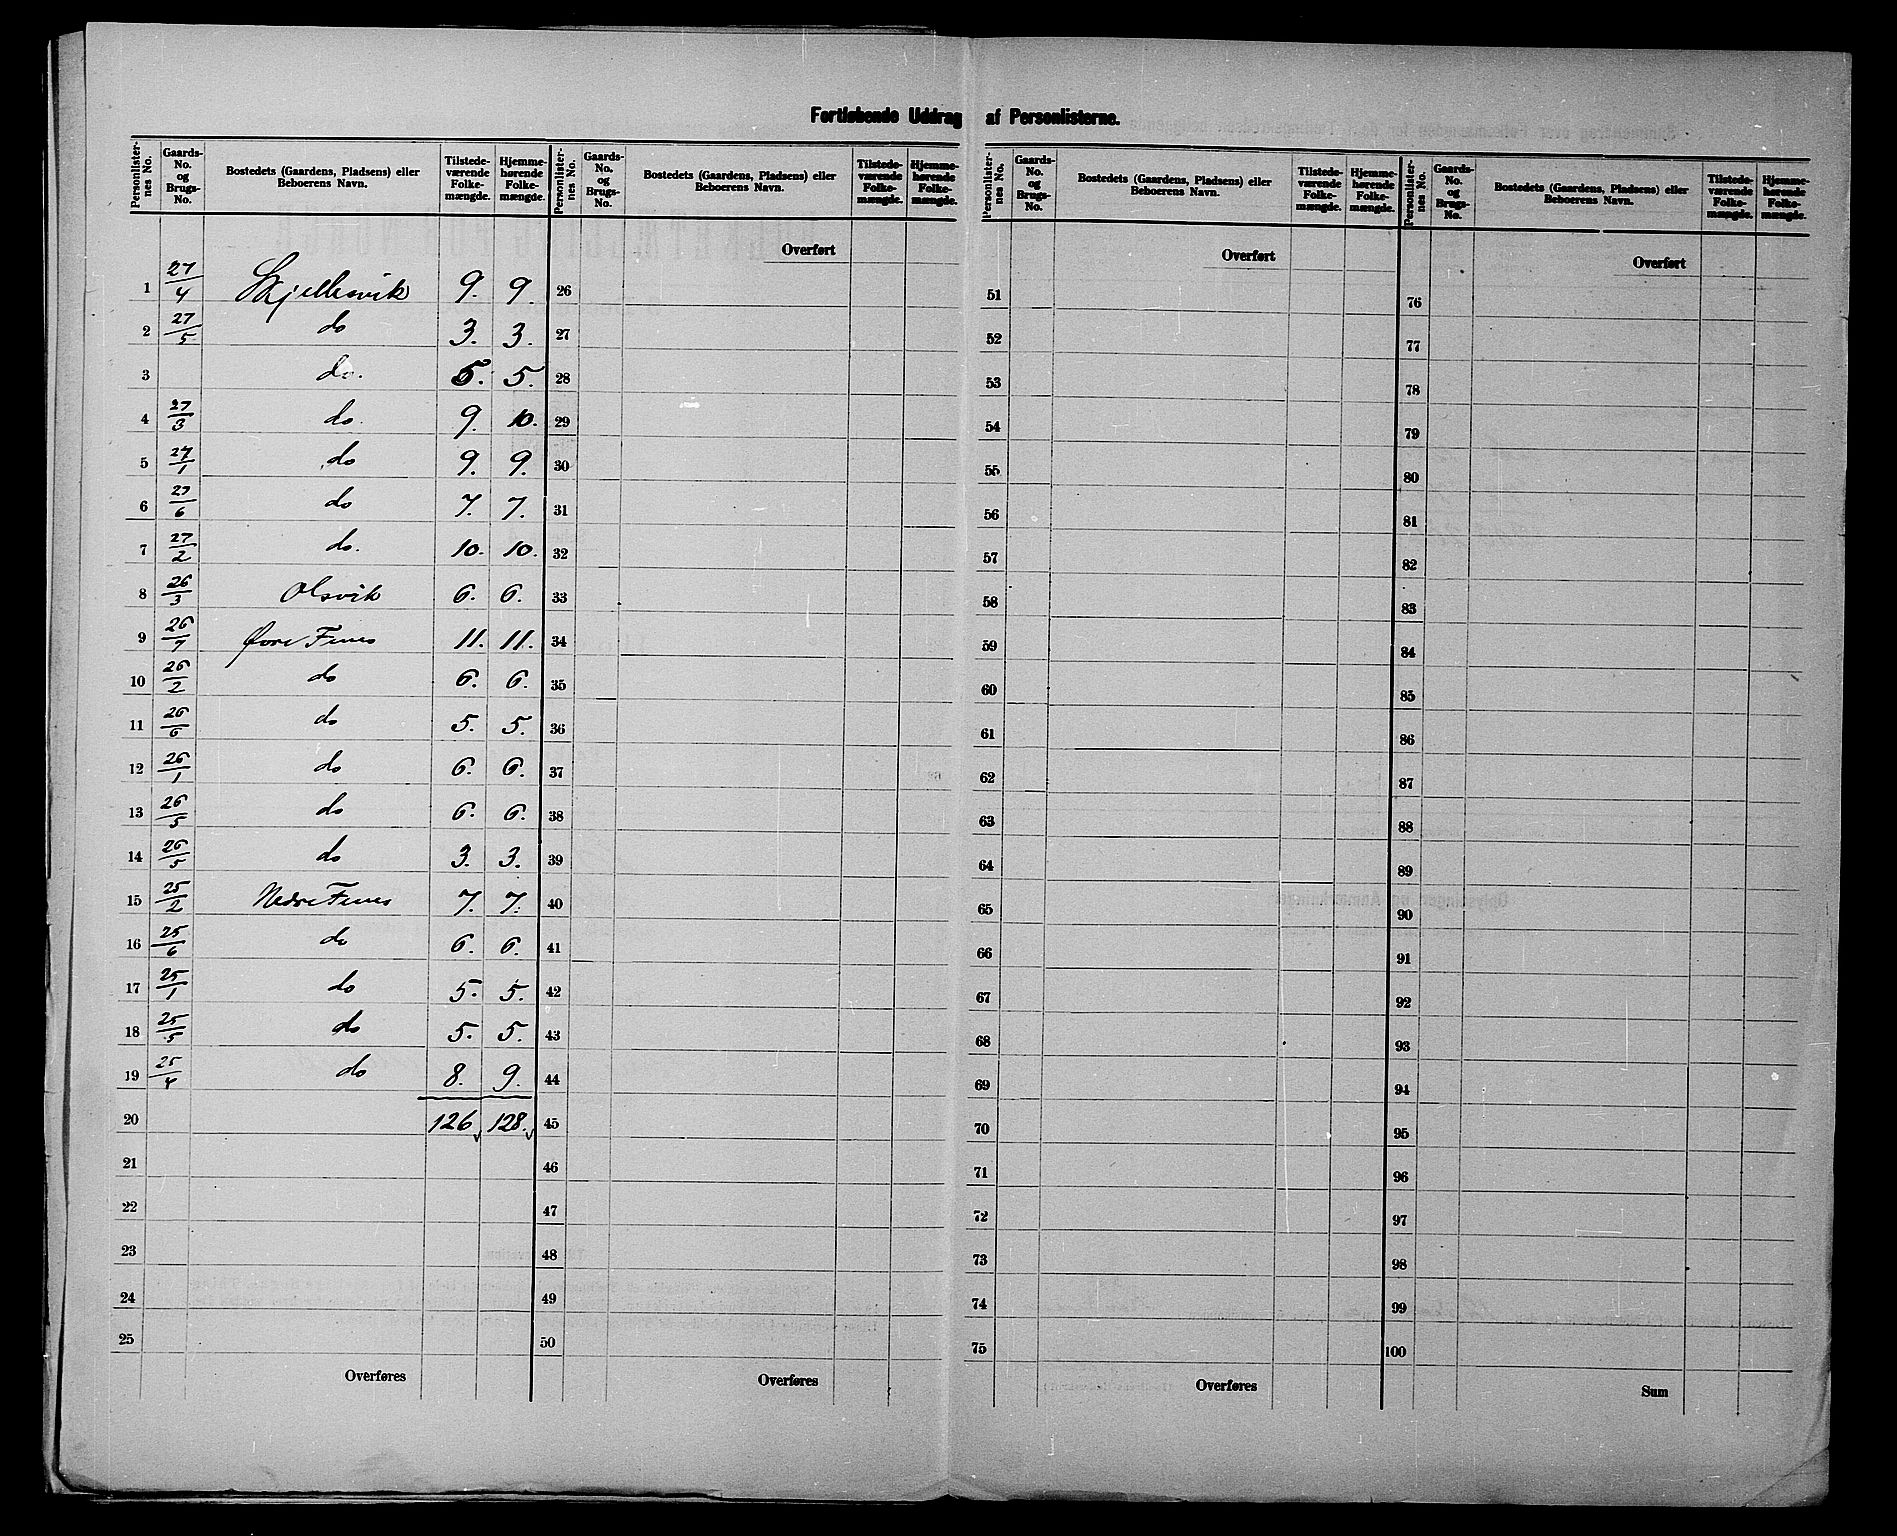 Fortløbende Uddrag af Personlisterne.
Personlister- nes No. | Gaards- No. og Brugs- No. | Bostedets (Gaardens, Pladsens) eller Beboerens Navn. | Tilstede- værende Folke- mængde. | Hjemme- hørende Folke- mængde. | Personlister- nes No. | Gaards- No. og Brugs- No. | Bostedets (Gaardens, Pladsens) eller Beboerens Navn. | Tilstede- værende Folke- mængde. | Hjemme- hørende Folke- mængde.
Overført
1 27/4 Skjellesvik 9. 9. 26
2 27/5 do 3. 3. 27
3 do. 5. 5. 28
4 27/3 do. 9. 10. 29
5 27/1 do 9. 9. 30
6 27/6 do 7. 7. 31
7 27/2 do. 10. 10. 32
8 26/3 Olsvik 6. 6. 33
9 26/7 Øvre Fenes 11. 11. 34
10 26/2 do 6. 6. 35
11 26/6 do 5. 5. 36
12 26/1 do 6. 6. 37
13 26/5 do 6. 6. 38
14 26/5 do 3. 3. 39
15 25/2 Nedre Fenes 7. 7. 40
16 25/6 do 6. 6. 41
17 25/1 do 5. 5. 42
18 25/5 do 5. 5. 43
19 25/4 do 8. 9. 44
20 126 128. 45
21 46
22 47
23 48
24 49
25 50
Overføres Overføres
Personlister- nes No. | Gaards- No. og Brugs- No. | Bostedets (Gaardens, Pladsens) eller Beboerens Navn. | Tilstede- værende Folke- mængde. | Hjemme- hørende Folke- mængde. | Personlister- nes No. | Gaards- No. og Brugs- No. | Bostedets (Gaardens, Pladsens) eller Beboerens Navn. | Tilstede- værende Folke- mængde. | Hjemme- hørende Folke- mængde.
Overført Overført
51 76
52 77
53 78
54 79
55 80
56 81
57 82
58 83
59 84
60 85
61 86
62 87
63 88
64 89
65 90
66 91
67 92
68 93
69 94
70 95
71 96
72 97
73 98
74 99
75 100
Overføres Sum